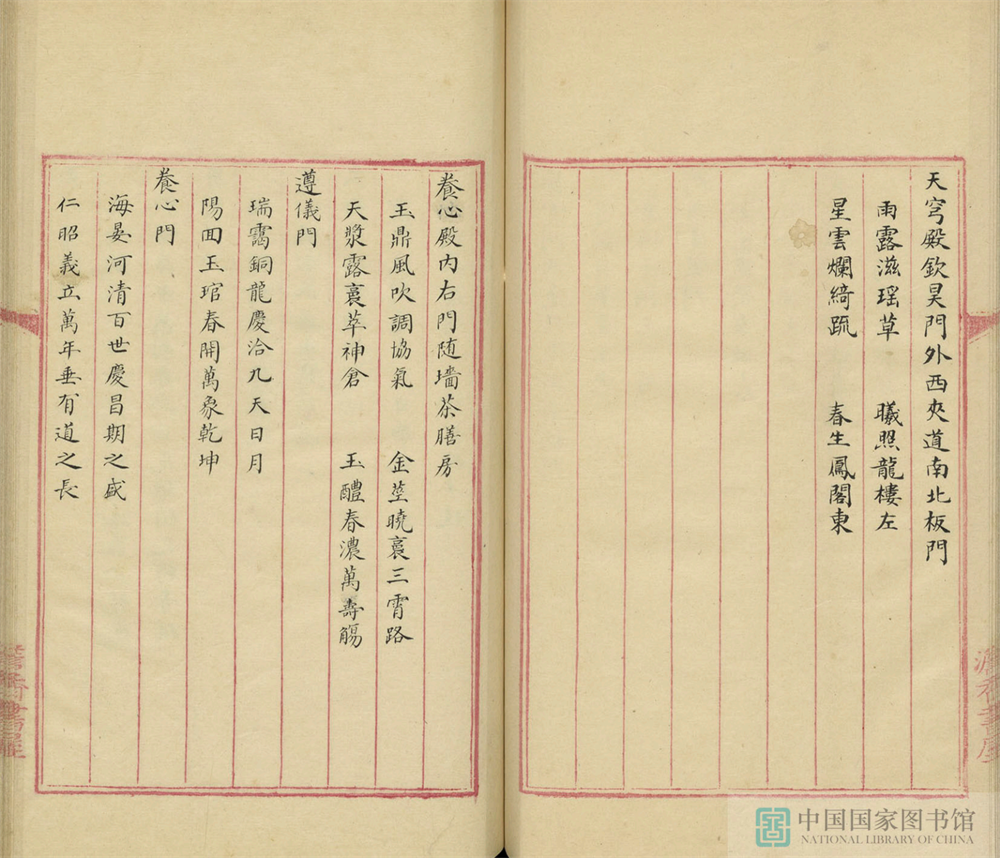 天穹殿欽昊門外西夾道南北板門
雨露滋瑶草 曦照龍樓左
星雲爛綺疏 春生鳳閣東
養心殿内右門随墻茶膳房
玉鼎風吹調協氣 金莖曉裛三霄路
天漿露裛萃神倉 玉醴春濃萬壽觴
遵儀門
瑞靄銅龍慶洽九天日月
陽回玉琯春開萬象乾坤
養心門
海晏河清百世慶昌期之盛
仁昭義立萬年垂有道之長
中国国家图书馆
NATIONAL LIBRARY OF CHINA